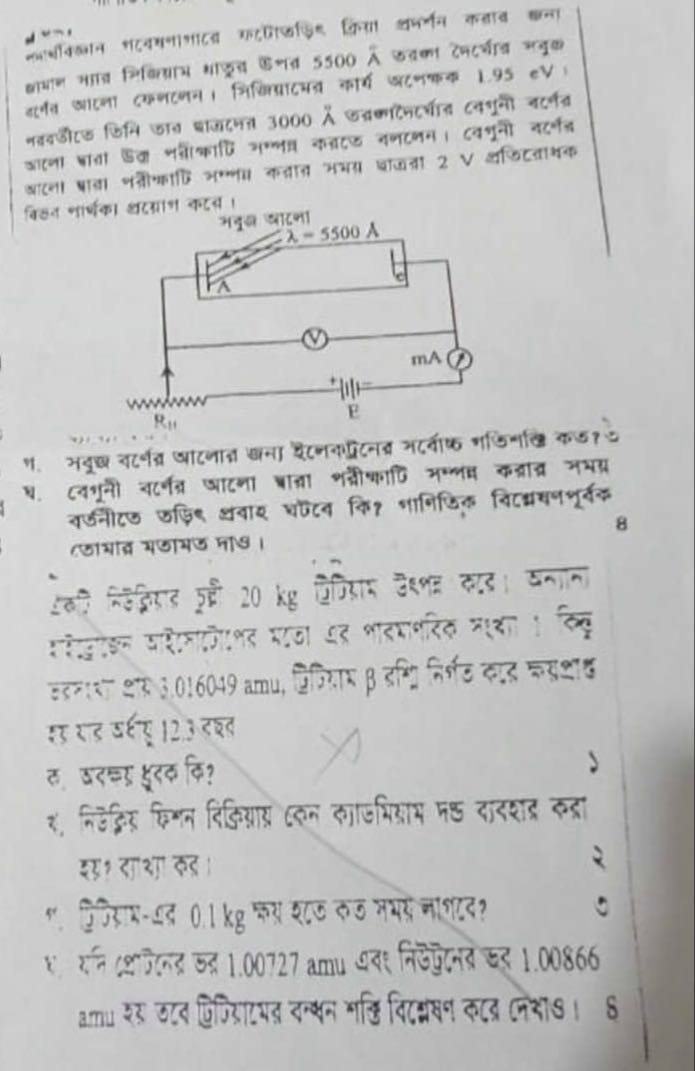 পদার্থবিজ্ঞান গবেষণাগারে ফটোতড়িৎ ক্রিয়া প্রদর্শন করার জন্য
জামাল স্যার সিজিয়াম ধাতুর উপর 5500 Å তরঙ্গ দৈর্ঘ্যের সবুজ
বর্ণের আলো ফেললেন। সিজিয়ামের কার্য অপেক্ষক 1.95 eV।
পরবর্তীতে তিনি তার ছাত্রদের 3000 Å তরঙ্গদৈর্ঘ্যের বেগুনী বর্ণের
আলো দ্বারা উক্ত পরীক্ষাটি সম্পন্ন করতে বললেন। বেগুনী বর্ণের
আলো দ্বারা পরীক্ষাটি সম্পন্ন করার সময় ছাত্ররা 2 V প্রতিরোধক
বিভব পার্থক্য প্রয়োগ করে।
সবুজ আলো
λ = 5500 Å
A
C
V
mA
+ −
E
R<sub>H</sub>
গ. সবুজ বর্ণের আলোর জন্য ইলেকট্রনের সর্বোচ্চ গতিশক্তি কত? ৩
ঘ. বেগুনী বর্ণের আলো দ্বারা পরীক্ষাটি সম্পন্ন করার সময়
বর্তনীতে তড়িৎ প্রবাহ ঘটবে কি? গাণিতিক বিশ্লেষণপূর্বক
তোমার মতামত দাও। ৪
একটি নিউক্লিয়ার চুল্লী 20 kg ট্রিটিয়াম উৎপন্ন করে। অন্যান্য
হাইড্রোজেন আইসোটোপের মতো এর পারমাণবিক সংখ্যা 1 কিন্তু
ভরসংখ্যা প্রায় 3.016049 amu, ট্রিটিয়াম β রশ্মি নির্গত করে ক্ষয়প্রাপ্ত
হয় যার অর্ধায়ু 12.3 বছর
ক. অবক্ষয় ধ্রুবক কি? ১
খ. নিউক্লিয় ফিশন বিক্রিয়ায় কেন ক্যাডমিয়াম দন্ড ব্যবহার করা
হয়? ব্যাখ্যা কর। ২
গ. ট্রিটিয়াম-এর 0.1 kg ক্ষয় হতে কত সময় লাগবে? ৩
ঘ. যদি প্রোটনের ভর 1.00727 amu এবং নিউট্রনের ভর 1.00866
amu হয় তবে ট্রিটিয়ামের বন্ধন শক্তি বিশ্লেষণ করে দেখাও। ৪